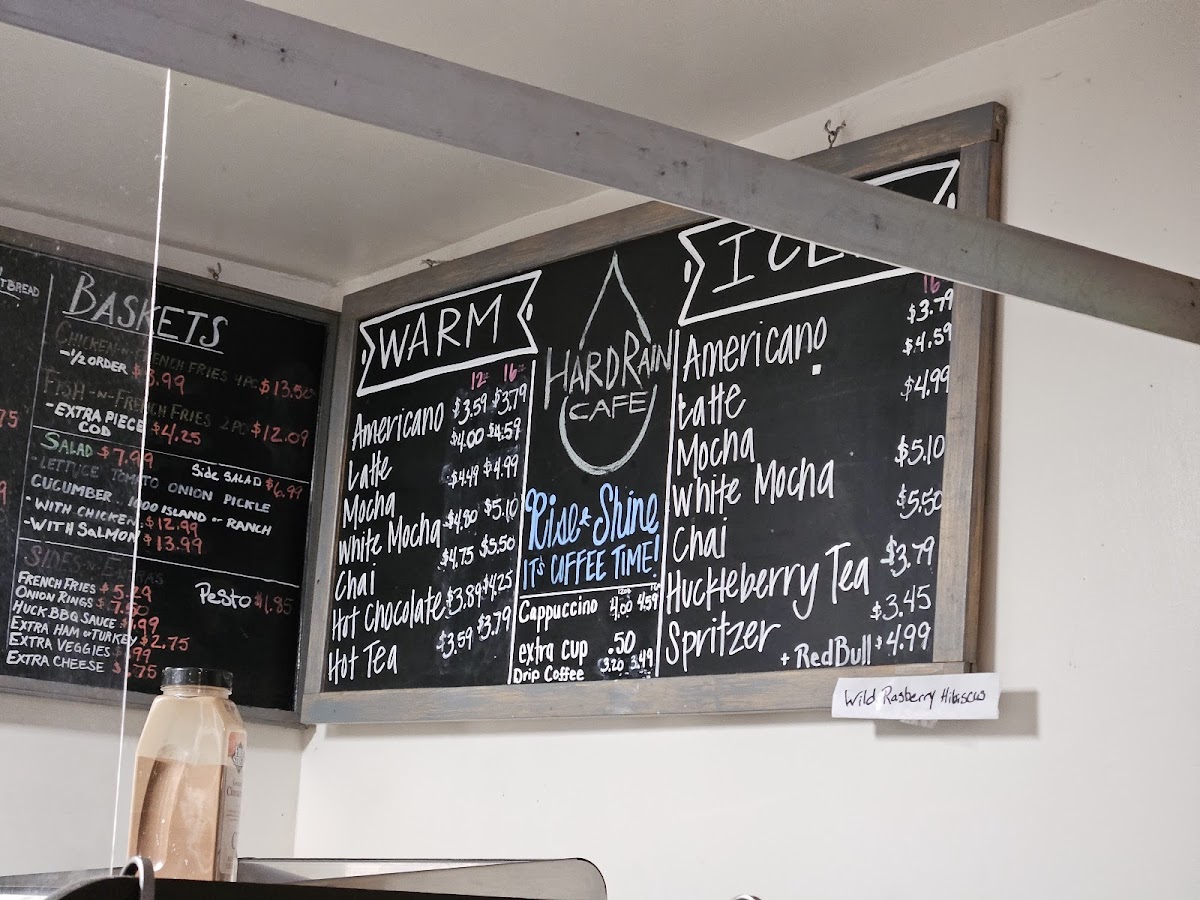 BASKETS
CHICKEN-N-FRENCH FRIES 4PC $13.50
-1/2 ORDER $8.99
FISH-N-FRENCH FRIES 2PC $12.09
-EXTRA PIECE COD $4.25
SALAD $7.99 Side SALAD $6.99
-LETTUCE TOMATO ONION PICKLE
CUCUMBER 1000 ISLAND or RANCH
-WITH CHICKEN $12.99
-WITH SALMON $13.99
FRENCH FRIES $5.29 Pesto $1.85
ONION RINGS $7.50
HUCK BBQ SAUCE
EXTRA HAM or TURKEY $2.75
EXTRA VEGGIES
EXTRA CHEESE
WARM
12oz 16oz
Americano $3.59 $3.79
Latte $4.00 $4.59
Mocha $4.49 $4.99
White Mocha $4.80 $5.10
Chai $4.75 $5.50
Hot Chocolate $3.89 $4.25
Hot Tea $3.59 $3.79
HARD RAIN
CAFE
Rise & Shine
IT'S COFFEE TIME!
Cappuccino 4.00 4.59
extra cup .50
Drip Coffee 3.20 3.49
16
Americano $3.79
Latte $4.59
Mocha $4.99
White Mocha $5.10
Chai $5.50
Huckleberry Tea $3.79
Spritzer $3.45
+ RedBull $4.99
Wild Rasberry Hibiscus